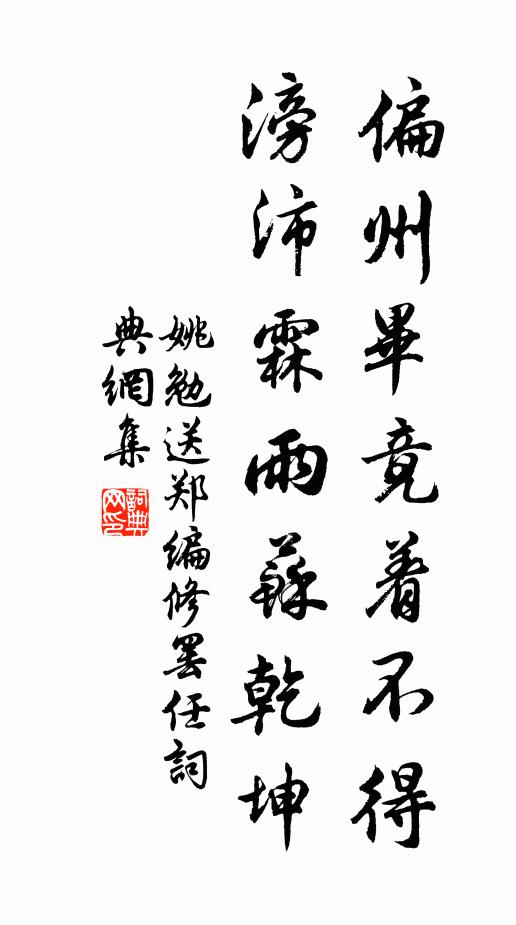 偏州畢竟着不得
滂沛霖雨蘇乾坤
姚勉送郑编修罢任詞
典網集
詞典
网印